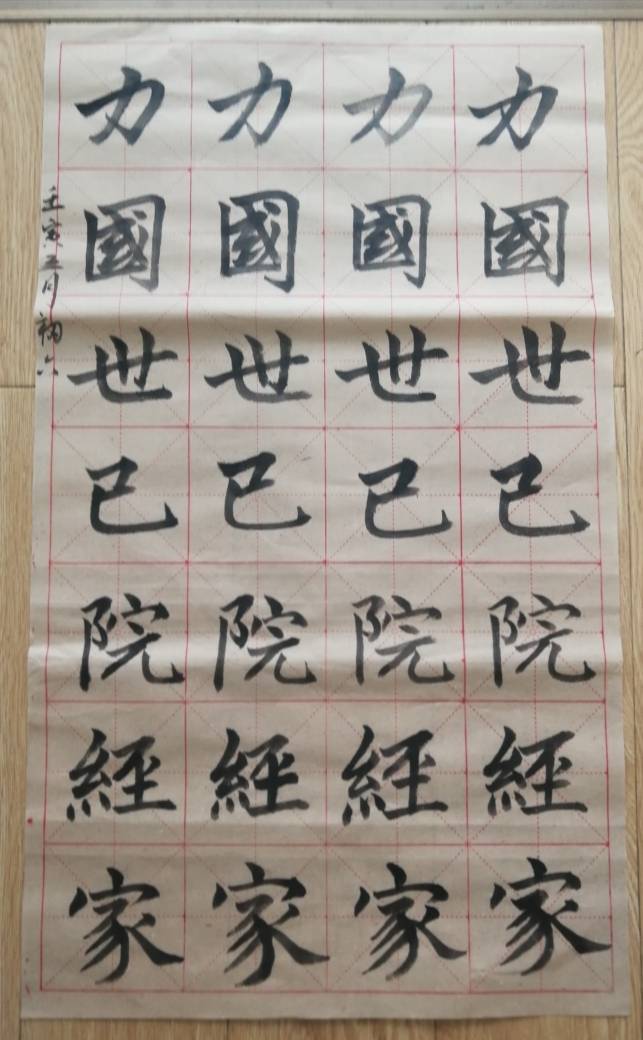 力國世已院經家
力國世已院經家
力國世已院經家
力國世已院經家
壬寅三月初六